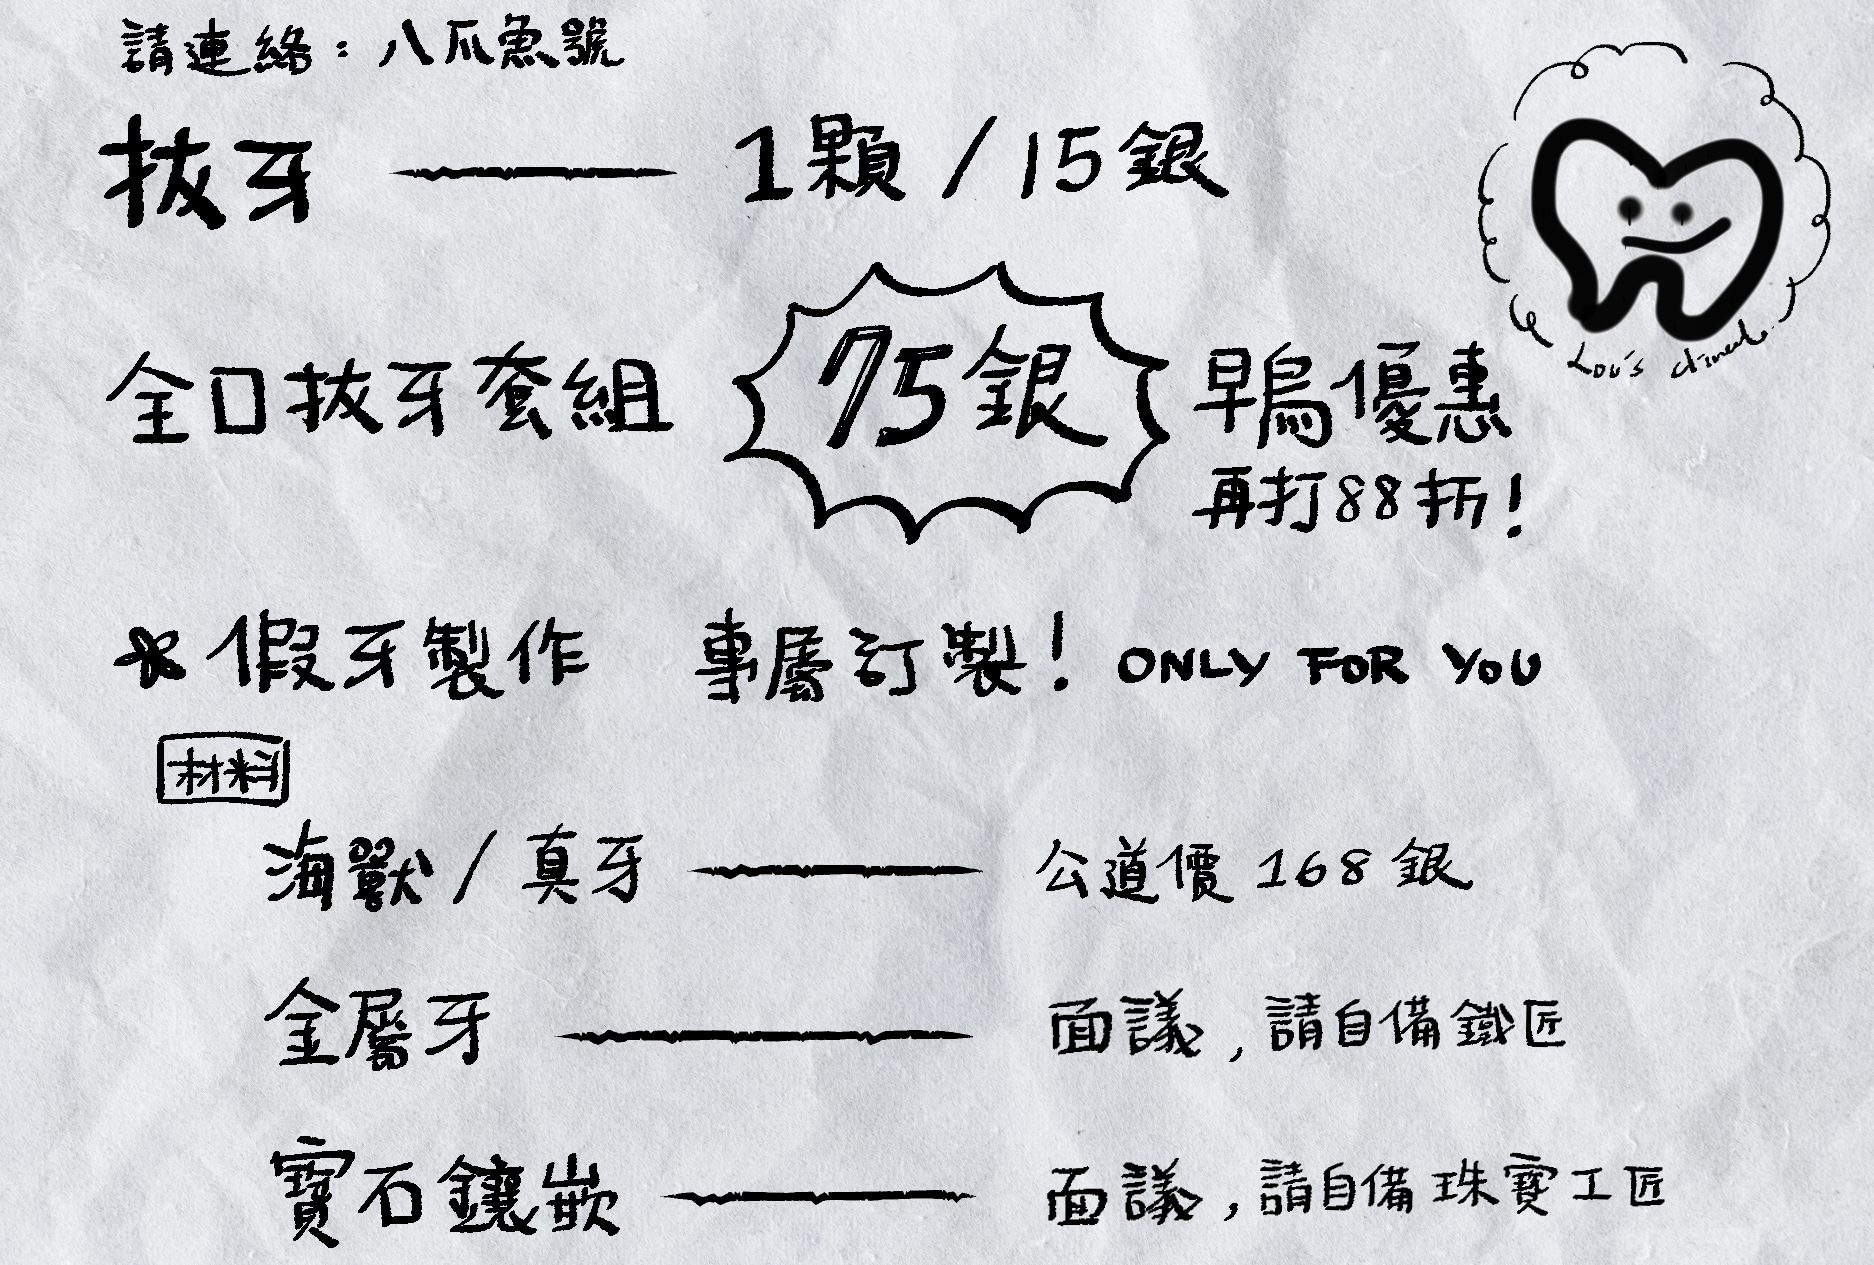 請連絡：八爪魚號
拔牙 1顆/15銀
全口拔牙套組 75銀 早鳥優惠
再打88折！
假牙製作 專屬訂製！ ONLY FOR YOU
材料
海獸/真牙 公道價 168 銀
金屬牙 面議，請自備鐵匠
寶石鑲嵌 面議，請自備珠寶工匠
Lou's